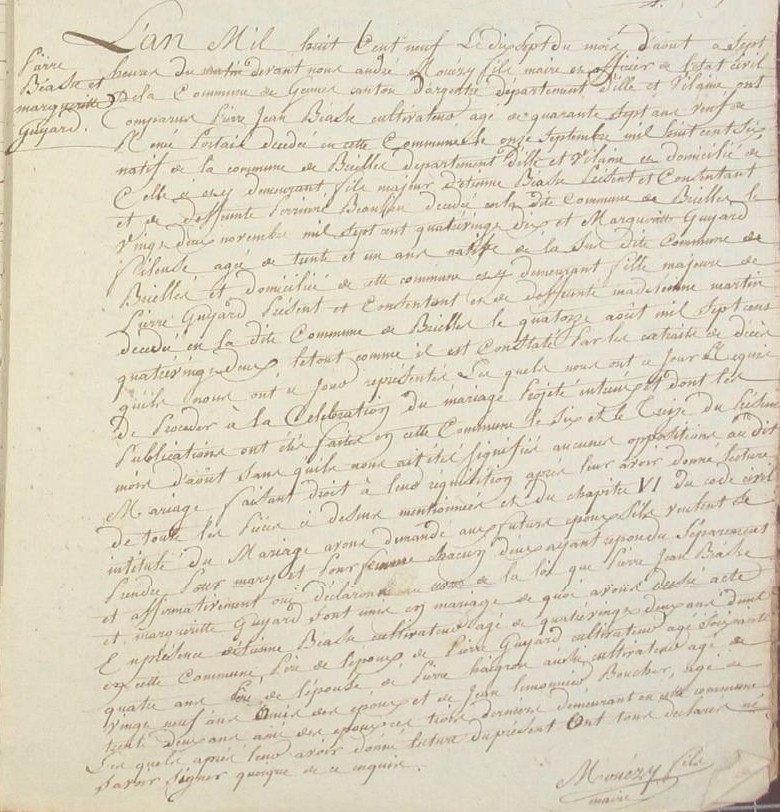 Pierre
Béasse et
margueritte
Guyard.
L'an Mil huit Cent neuf Le dix sept du mois d'aout a sept
heures du matin devant nous andré Mouëzy fils maire et officier de l'etat civil
De la Commune de Gennes canton D'argentré departement Dille et Vilaine ont
Comparus Pierre Jean Béasse cultivateur agé de quarante sept ans veuf de
Renée Portais decedée en cette Commune le onze Septembre mil huit cent six
natif de la commune de Brielles departement Dille et Vilaine et domicilié de
Celle ci et y demeurant fils majeur d'etienne Béasse Présent et Consentant
et de deffunte Perrine decedée en la dite Commune de Brielles le
vingt deux novembre mil sept cent quatrevingt dix et Margueritte Guyard
fileuse agée de trente et un ans native de la Sus dite Commune de
Brielles et domicilié de cette commune et y demeurant fille majeure de
Pierre Guyard Présent et Consentant et de deffunte madeleine martin
decedée en La dite Commune de Brielles le quatorze août mil sept cens
quatrevingt deux, le tout comme il est Constaté Par les extraits de décès
qu'ils nous ont ce jour représentés Les quels nous ont ce jour Requis
De Proceder à la Célébration du mariage Projeté entreux et dont les
Publications ont étés faites en cette Commune le Six et le Treize du Présent
mois d'août Sans qu'ils nous ait été signifié aucunes oppositions au dit
Mariage faisant droit à leur réquisition apres leur avoir donné lecture
de toute les Pièces ci dessus mentionnées et du chapitre VI du code civil
intitulé du Mariage avons demandé aux futurs epoux S'ils veulent se
Prendre Pour mary et Pour femme chacun d'eux ayant repondu Séparement
et affirmativement oui déclarons au nom de la loi que Pierre Jean Béasse
et margueritte Guyard sont unis en mariage de quoi avons dressé acte
En présence d'étienne Béasse cultivateur agé de quatrevingt deux ans
en cette Commune, Père de l'époux de Pierre Guyard cultivateur agé Soixante
quatre ans Père de l'épouse de Pierre aussi cultivateur agé de
vingt neuf ans amis des epoux et de Jean lemonnier Boucher, agé de
trente Deux ans ami des epoux ces trois derniers demeurant en cette commune
Les quels après leur avoir donné lecture du présent Ont tous declarés ne
savoir Signer quoique de ce enquis.
Mouëzy fils
maire